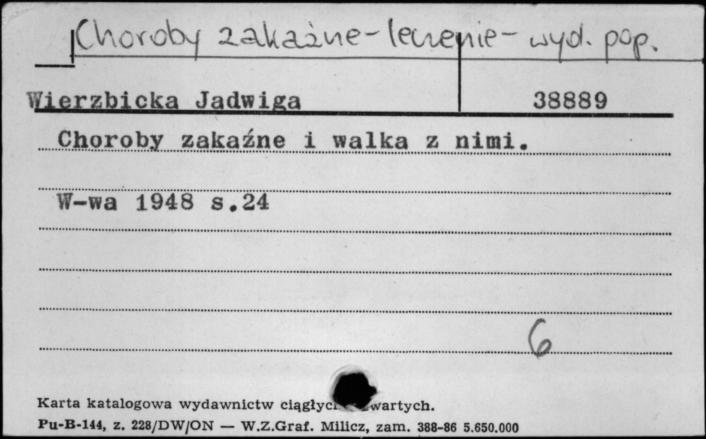 Choroby zakaźne - leczenie - wyd. pop.
Wierzbicka Jadwiga 38889
Choroby zakaźne i walka z nimi.
W-wa 1948 s.24
6
Karta katalogowa wydawnictw ciągłyc wartych.
Pu-B-144, z. 228/DW/ON — W.Z.Graf. Milicz, zam. 388-86 5.650.000